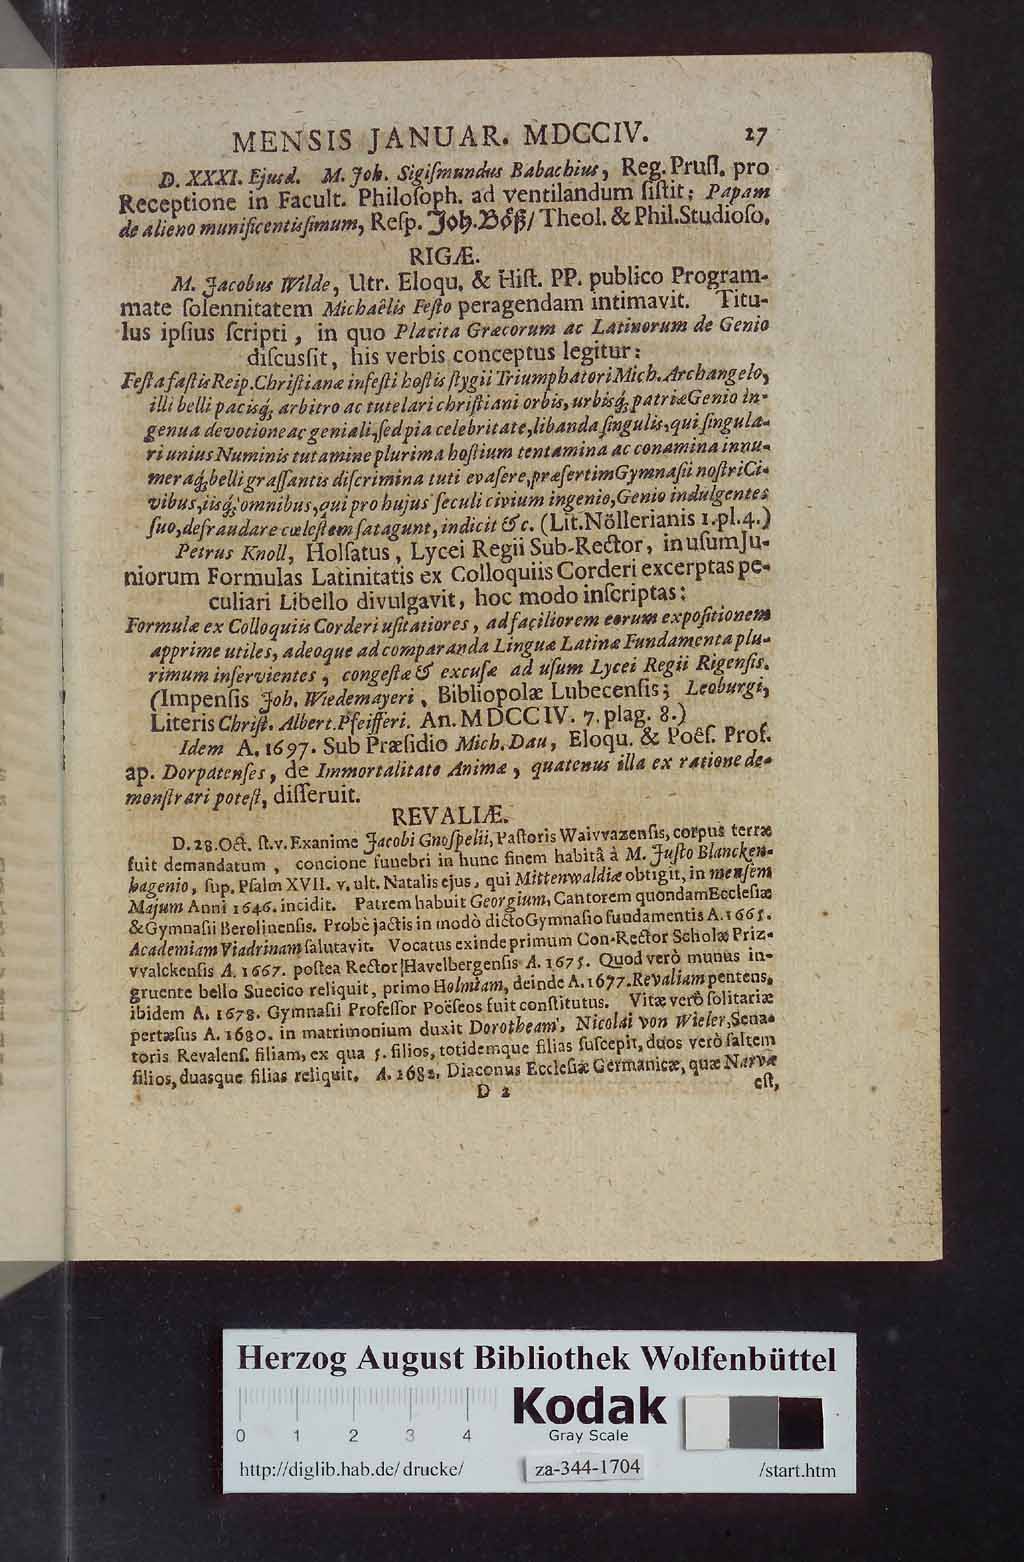 MENSIS JANUAR. MDCCIV. 27
D. XXXI. Ejusd. M. Joh. Sigiſmundus Babachius, Reg. Pruſſ. pro
Receptione in Facult. Philoſoph. ad ventilandum ſiſtit; Papam
de alieno munificentisſimum, Reſp. Joh. Böß/ Theol. & Phil. Studioſo.
RIGÆ.
M. Jacobus Wilde, Utr. Eloqu. & Hiſt. PP. publico Program-
mate ſolennitatem Michaëlis Feſto peragendam intimavit. Titu-
lus ipſius ſcripti, in quo Placita Græcorum ac Latinorum de Genio
diſcusſit, his verbis conceptus legitur:
Feſta faſtis Reip. Chriſtianæ infeſti hoſtis ſtygii Triumphatori Mich. Archangelo,
illi belli pacisq; arbitro ac tutelari chriſtiani orbis, urbisq; patriæ Genio in-
genua devotione ac geniali, ſed pia celebritate, libanda ſingulis, qui ſingula-
ri unius Numinis tutamine plurima hoſtium tentamina ac conamina innu-
meraq; belli graſſantis diſcrimina tuti evaſere, præſertim Gymnaſii noſtri Ci-
vibus, iisq; omnibus, qui pro hujus ſeculi civium ingenio, Genio indulgentes
ſuo, defraudare cœleſtem ſatagunt, indicit &c. (Lit. Nöllerianis 1. pl. 4.)
Petrus Knoll, Holſatus, Lycei Regii Sub-Rector, in uſum Ju-
niorum Formulas Latinitatis ex Colloquiis Corderi excerptas pe-
culiari Libello divulgavit, hoc modo inſcriptas:
Formulæ ex Colloquiis Corderi uſitatiores, ad faciliorem eorum expoſitionem
apprime utiles, adeoque ad comparanda Linguæ Latinæ Fundamenta plu-
rimum inſervientes, congeſtæ & excuſæ ad uſum Lycei Regii Rigenſis.
(Impenſis Joh. Wiedemayeri, Bibliopolæ Lubecenſis; Leoburgi,
Literis Chriſt. Albert. Pfeifferi. An. MDCCIV. 7. plag. 8.)
Idem A. 1697. Sub Præſidio Mich. Dau, Eloqu. & Poëſ. Prof.
ap. Dorpatenſes, de Immortalitate Animæ, quatenus illa ex ratione de-
monſtrari poteſt, diſſeruit.
REVALIÆ.
D. 28. Oct. ſt. v. Exanime Jacobi Gnoſpelii, Paſtoris Waivvazenſis, corpus terræ
fuit demandatum, concione funebri in hunc finem habitâ à M. Juſto Blancken-
hagenio, ſup. Pſalm XVII. v. ult. Natalis ejus, qui Mittenwaldiæ obtigit, in menſem
Majum Anni 1646. incidit. Patrem habuit Georgium, Cantorem quondam Eccleſiæ
& Gymnaſii Berolinenſis. Probè jactis in modò dicto Gymnaſio fundamentis A. 1665.
Academiam Viadrinam ſalutavit. Vocatus exinde primum Con-Rector Scholæ Priz-
vvalckenſis A. 1667. poſtea Rector Havelbergenſis A. 1675. Quod verò munus in-
gruente bello Suecico reliquit, primo Holmiam, deinde A. 1677. Revaliam pentens,
ibidem A. 1678. Gymnaſii Profeſſor Poëſeos fuit conſtitutus. Vitæ verò ſolitariæ
pertæſus A. 1680. in matrimonium duxit Dorotheam, Nicolai von Wieler, Sena-
toris Revalenſ. filiam, ex qua 5. filios, totidemque filias ſuſcepit, duos verò ſaltem
filios, duasque filias reliquit. A. 1682. Diaconus Eccleſiæ Germanicæ, quæ Narvæ
D 2 eſt,
Herzog August Bibliothek Wolfenbüttel
Kodak
Gray Scale
0 1 2 3 4
http://diglib.hab.de/drucke/ za-344-1704 /start.htm